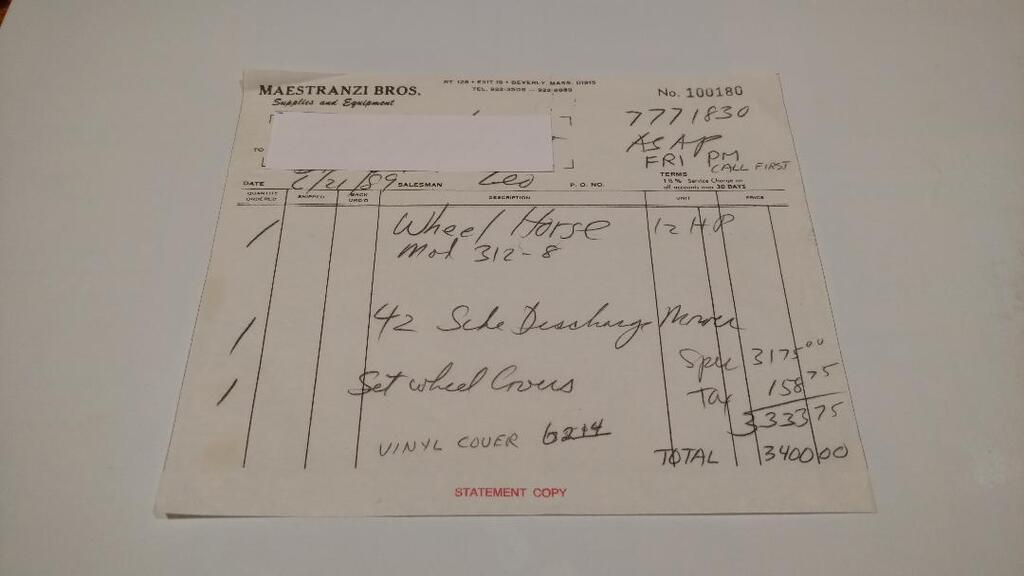 RT 128 • EXIT 19 • BEVERLY, MASS. 01915
MAESTRANZI BROS.
TEL. 922-3509 — 922-8989
No. 100180
Supplies and Equipment
7771830
ASAP
FRI PM
CALL FIRST
TO
TERMS
1½% Service Charge on
all accounts over 30 DAYS
DATE 6/21/89 SALESMAN Leo P. O. NO.
QUANTITY ORDERED SHIPPED BACK ORD'D DESCRIPTION UNIT PRICE
1 Wheel Horse 12 HP
Mod 312-8
1 42 Side Discharge Mower
Spec 3175 00
1 Set Wheel Covers Tax 158 75
3333 75
VINYL COVER 6214
TOTAL 3400 00
STATEMENT COPY